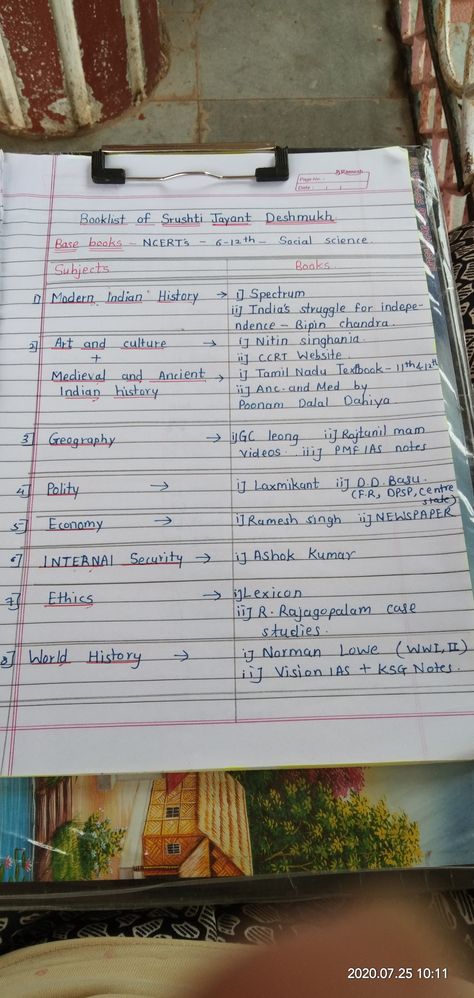 Ramesh
Page No.:
Date: / /
Booklist of Srushti Jayant Deshmukh
Base books - NCERT's - 6-12th - Social science.
Subjects Books
1) Modern Indian History → i] Spectrum
ii] India's struggle for indepe-
ndence - Bipin chandra.
2] Art and culture → i] Nitin singhania.
+ ii] CCRT Website.
Medieval and Ancient → i] Tamil Nadu Textbook - 11th & 12th
Indian history ii] Anc. and Med by
Poonam Dalal Dahiya
3] Geography → i]GC leong ii] Rajtanil mam
videos. iii] PMF IAS notes
4] Polity → i] Laxmikant ii] D.D. Basu.
(F.R, DPSP, Centre
state)
5] Economy → i] Ramesh singh ii] NEWSPAPER
6] INTERNAl Security → i] Ashok Kumar
7] Ethics → i]Lexicon
ii] R. Rajagopalam case
studies.
8] World History → i] Norman Lowe (WWI, II)
ii] Vision IAS + KSG Notes.
2020.07.25 10:11